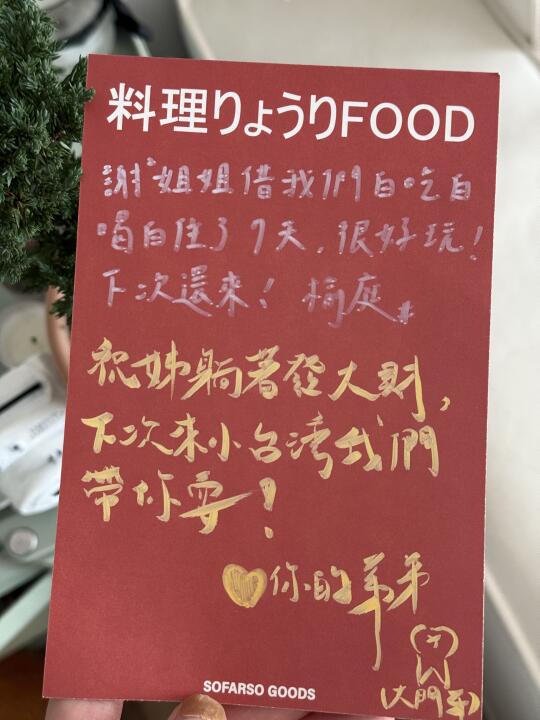 料理りょうりFOOD
謝姐姐借我們白吃白
喝白住了7天,很好玩!
下次還來! 榆庭
祝姊躺著發大財,
下次來小台灣我們
帶你耍!
你的弟弟
SOFARSO GOODS